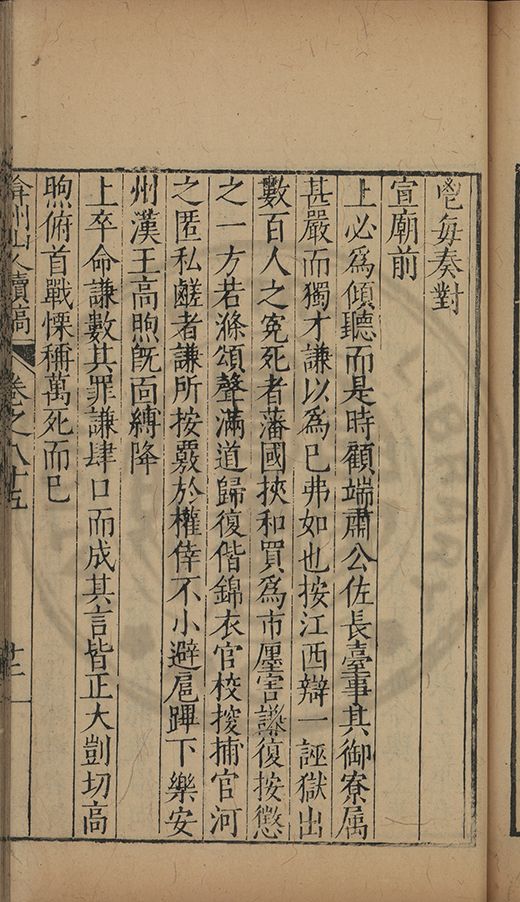 鬯每奏對
宣廟前
上必爲傾聽而是時顧端肅公佐長臺事其御寮属
甚嚴而獨才謙以爲巳弗如也按江西辯一誣獄出
數百人之寃死者藩國挾和買爲市廛害謙復按懲
之一方若滌頌聲滿道歸復偕錦衣官校按捕官河
之匿私鹺者謙所按覈於權倖不小避扈蹕下樂安
州漢王高煦旣靣縛降
上卒命謙數其罪謙肆口而成其言皆正大剴切高
煦俯首戰慄稱萬死而巳
弇州山人續稿 卷之八十五 十二